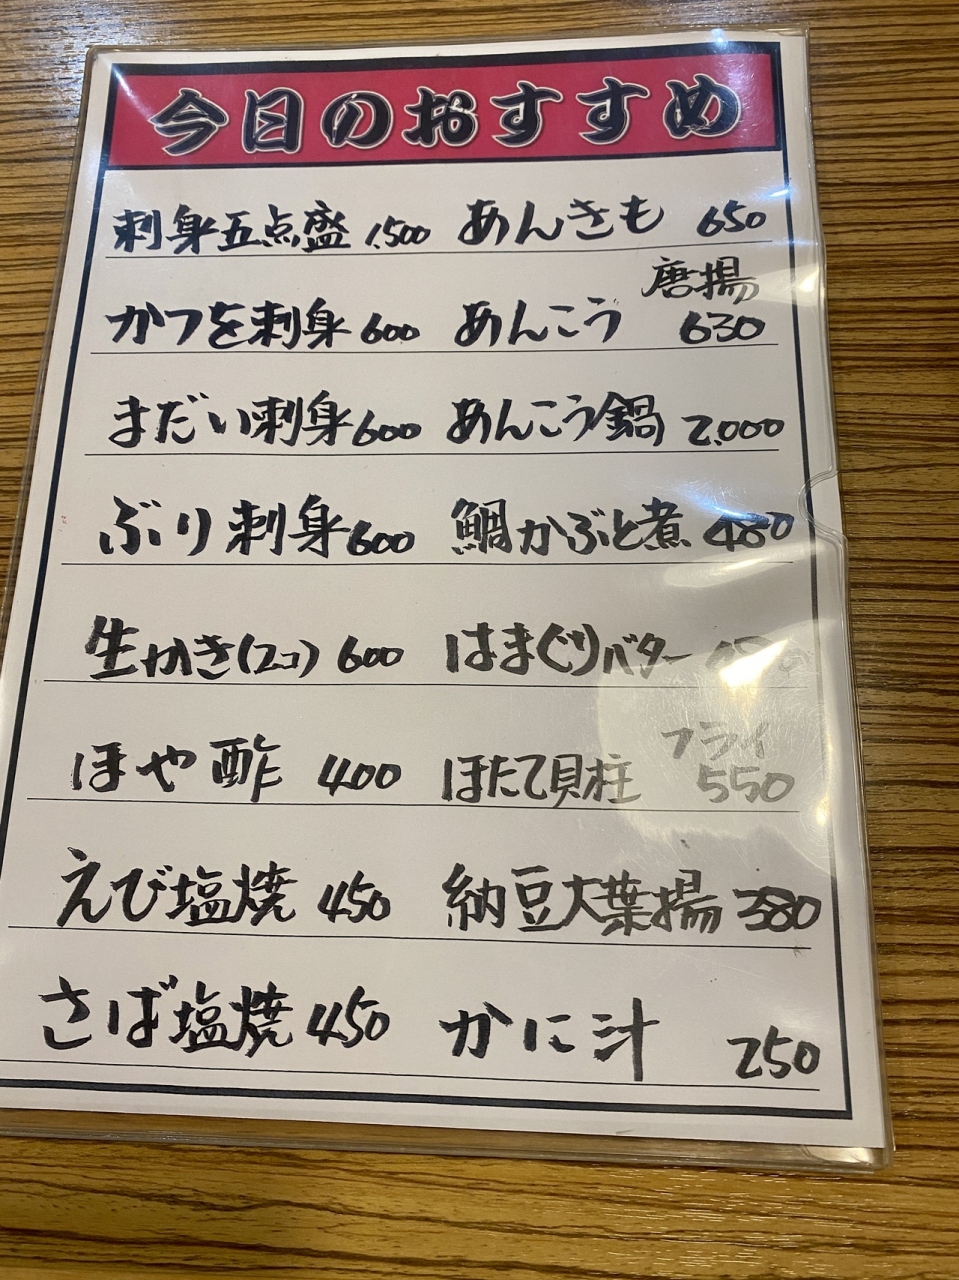 今日のおすすめ
刺身五点盛 1,500
かつを刺身 600
まだい刺身 600
ぶり刺身 600
生かき(2コ) 600
ほや酢 400
えび塩焼 450
さば塩焼 450
あんきも 650
あんこう 唐揚 630
あんこう鍋 2,000
鯛かぶと煮 480
はまぐりバター
ほたて貝柱 フライ 550
納豆大葉揚 380
かに汁 250